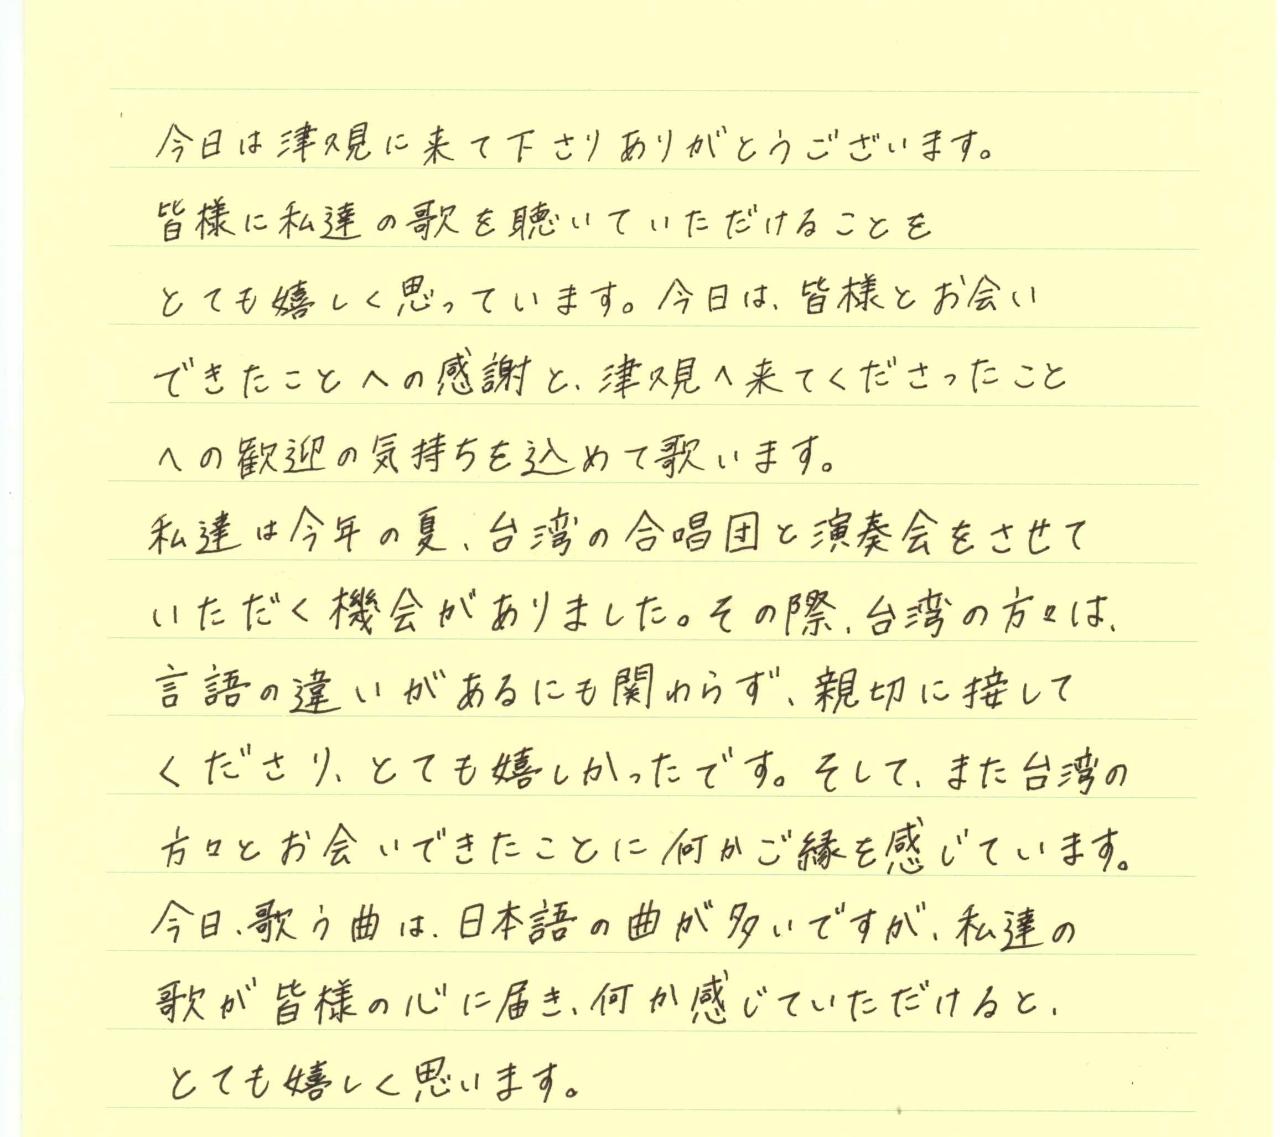 今日は津久見に来て下さりありがとうございます。
皆様に私達の歌を聴いていただけることを
とても嬉しく思っています。今日は、皆様とお会い
できたことへの感謝と、津久見へ来てくださったこと
への歓迎の気持ちを込めて歌います。
私達は今年の夏、台湾の合唱団と演奏会をさせて
いただく機会がありました。その際、台湾の方々は、
言語の違いがあるにも関わらず、親切に接して
くださり、とても嬉しかったです。そして、また台湾の
方々とお会いできたことに何かご縁を感じています。
今日、歌う曲は、日本語の曲が多いですが、私達の
歌が皆様の心に届き、何か感じていただけると、
とても嬉しく思います。